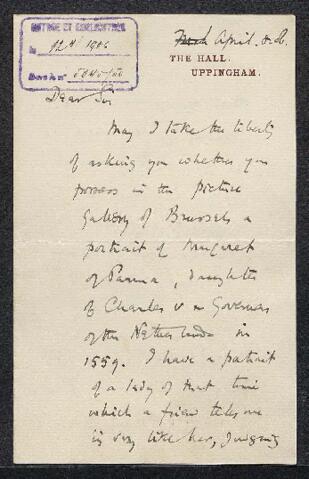 ENTRÉE ET CORRESPCE
April.
THE HALL,
UPPINGHAM.
Dear Sir
May I take the liberty
of asking you whether you
possess in the picture
Gallery of Brussels a
portrait of Margaret
of Parma, daughter
of Charles V & Governess
of the Netherlands in
1559. I have a portrait
of a lady of that time
which a friend tells me
is very like her, judging